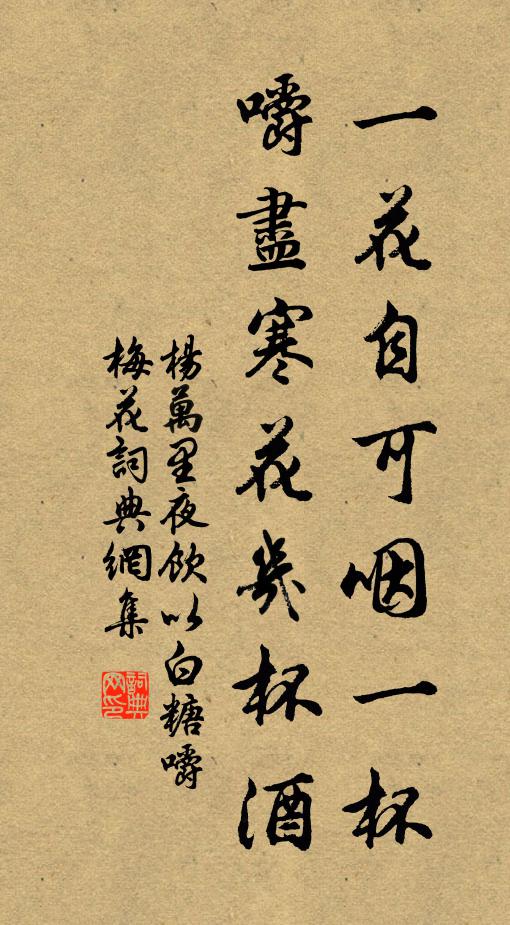 一花自可咽一杯
嚼盡寒花幾杯酒
楊萬里夜飲以白糖嚼
梅花詞典網集
詞典網印